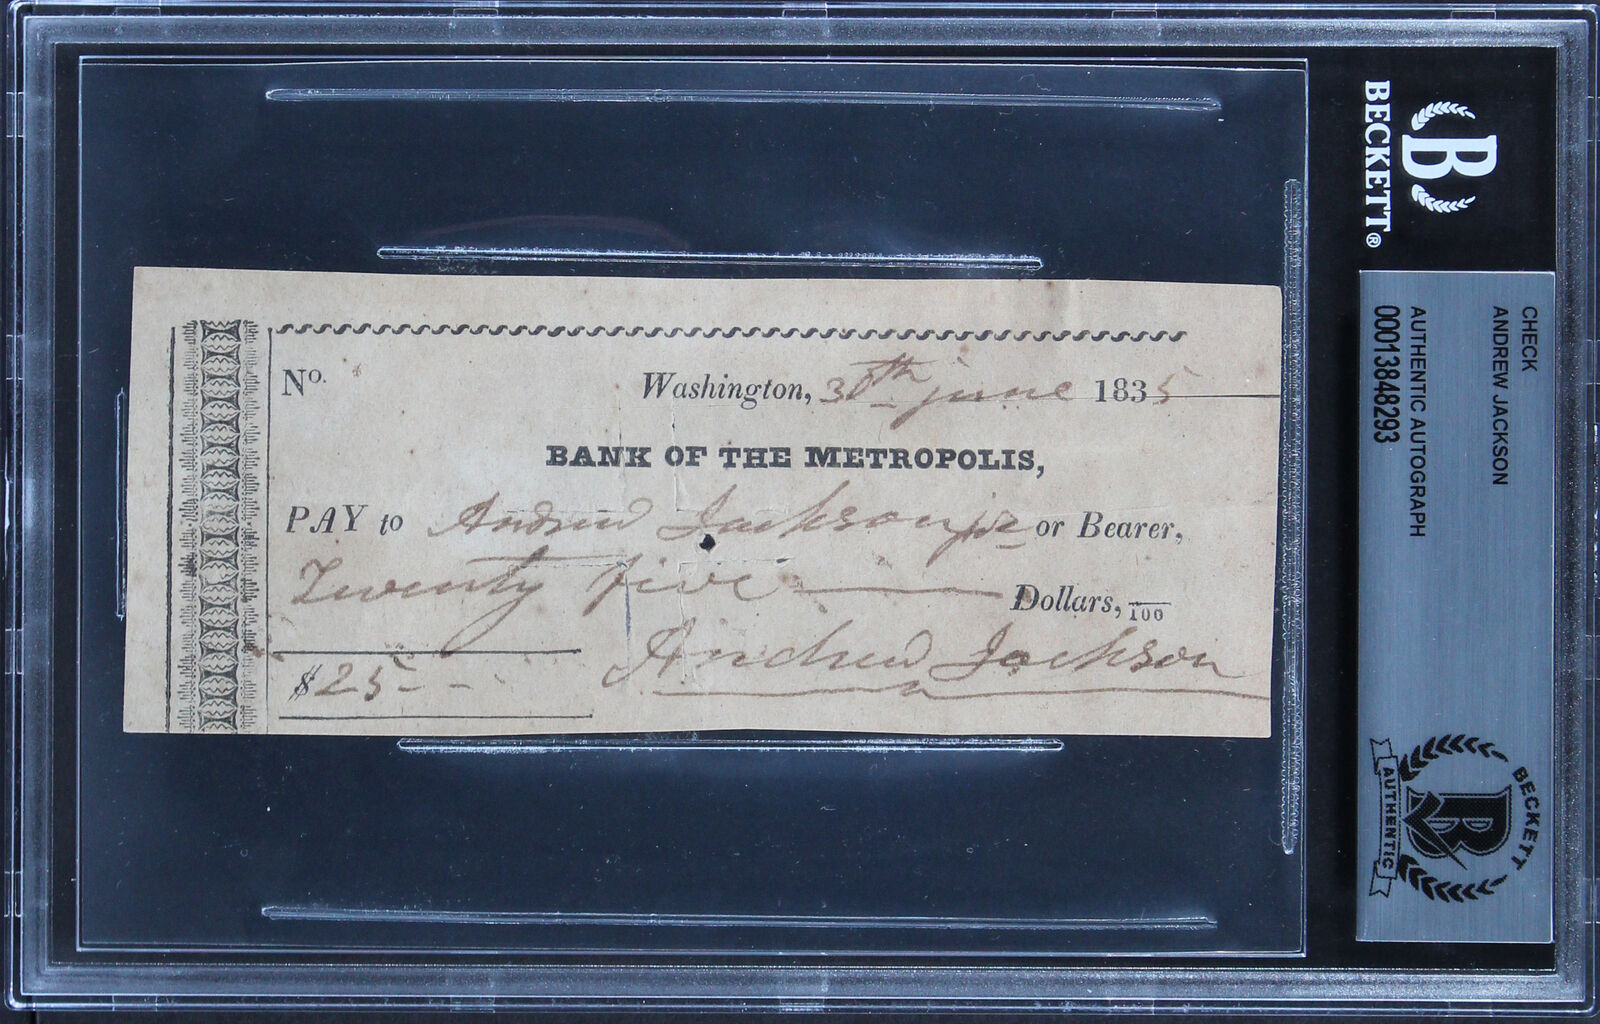 No. Washington, 30th june 1835
BANK OF THE METROPOLIS,
PAY to Andrew Jackson jr or Bearer,
Twenty five Dollars, /100
$25 Andrew Jackson
B
BECKETT®
CHECK
ANDREW JACKSON
AUTHENTIC AUTOGRAPH
00013848293
BECKETT
B
AUTHENTIC